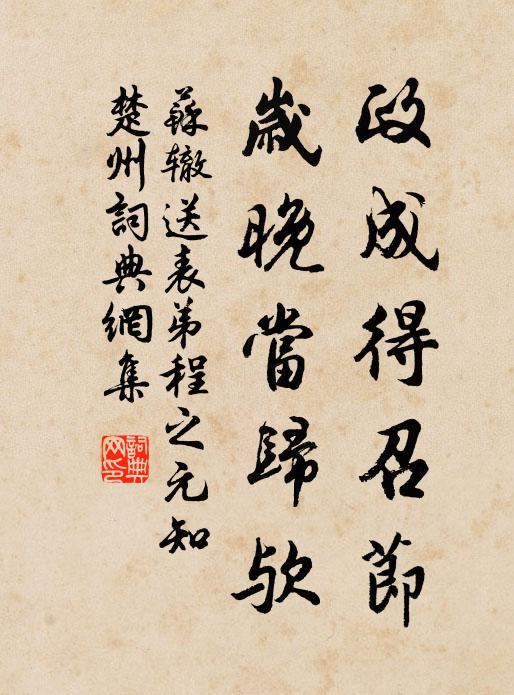 政成得召節
歲晚當歸歟
蘇辙送表弟程之元知
楚州詞典網集
詞典网印